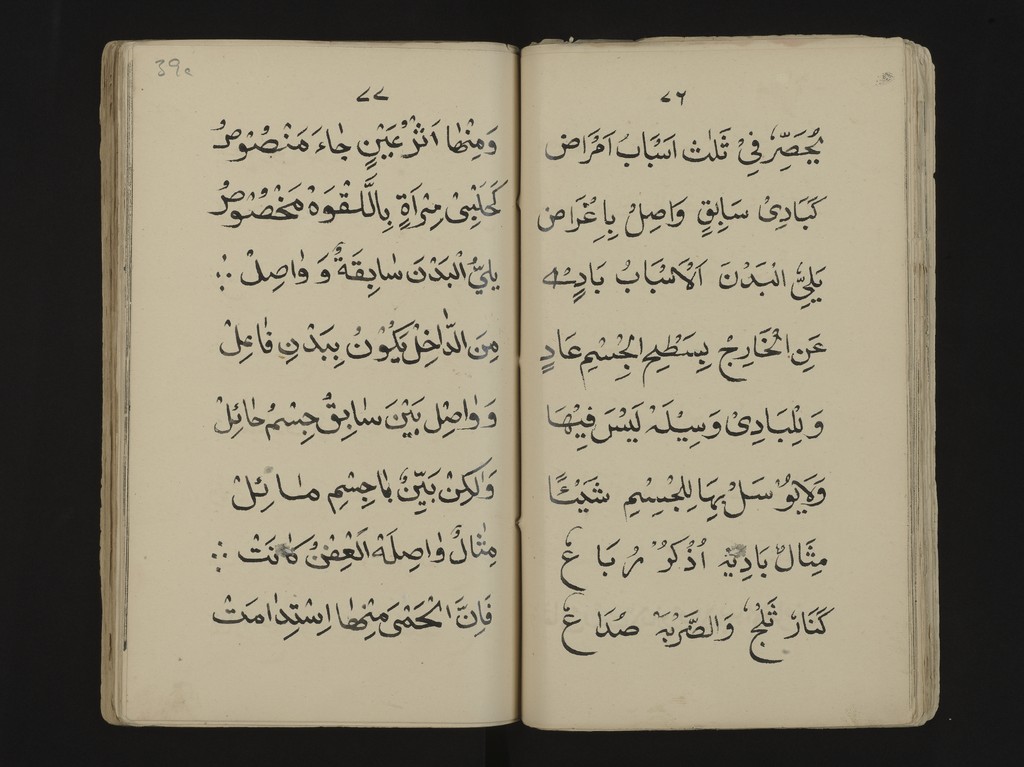 ٧٦
يُحَصِّرُ فِىْ ثَلٰث اَسْبَابُ اَمْرَاض
كَبَادِىْ سَابِقٍ وَاصِلْ بِاِعْرَاض
يَلِىِّ الْبَدْنَ اَلْاَسْبَابُ بَادِىْ
عَنِ الْخَارِجْ بِسَطْحِ الْجِسْمِ عَادٍ
وَلِلْبَادِىْ وَسِيْلَهْ لَيْسَ فِيْهَا
وَلَايُوْسَلْ بِهَا لِلْجِسْمِ شَيْئًا
مِثَالُ بَادِيَهْ اُذْكُرْ رُبَاعْ
كَنَارْ ثَلْجْ وَالضَّرْبَهْ صُدَاعْ
٧٧
39a
وَمِنْهٰا اَثْرُ عَيْنٍ جٰاءَ مَنْصُوْصْ
كَحَلَبِىْ مِرْاَةٍ بِاللَّقْوَهْ مَخْصُوْصْ
يلِىُّ الْبَدْنَ سٰابِقَةٌ وَ وٰاصِلْ ∴
مِنَ الدّٰاخِلْ يَكُوْنُ بِبَدْنِ فٰاعِلْ
وَ وٰاصِلْ بَيْنَ سٰابِقُ جِسْمُ حٰائِلْ
وَلٰكِنْ بَيِّنْ مٰا جِسْمِ مٰائِلْ
مِثٰالُ وٰاصِلَهْ اَلْعِفْنُ كٰانَتْ ∴
فَاِنَّ الْحَمّٰى مِنْهٰا اِسْتِدٰامَتْ